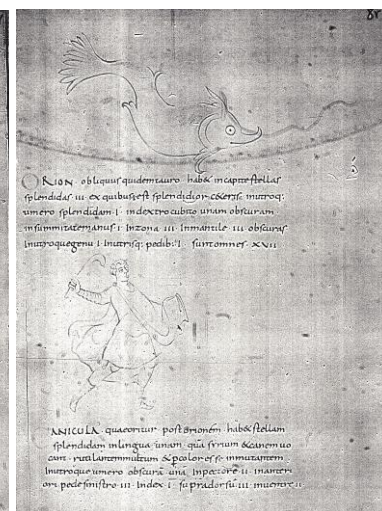 ORION obliquus quidem tauro hab& in capite stellas
splendidas III ex quibus est splendidior c&eris in utroq:
umero splendidam I in dextro cubito unam obscuram
in summitate manus I In zona III In mantile III obscuras
In utroque genu I In utrisq: pedib: I sunt omnes XVII
ANICULA quae oritur post orionem hab& stellam
splendidam in lingua unam quā syrium & canem uo
cant rutilantem multum & p colores se inmutantem
In utroque umero obscurā unā In pectore II In anteri
ori pede sinistro III In dex I supra dorsū III in uentre II